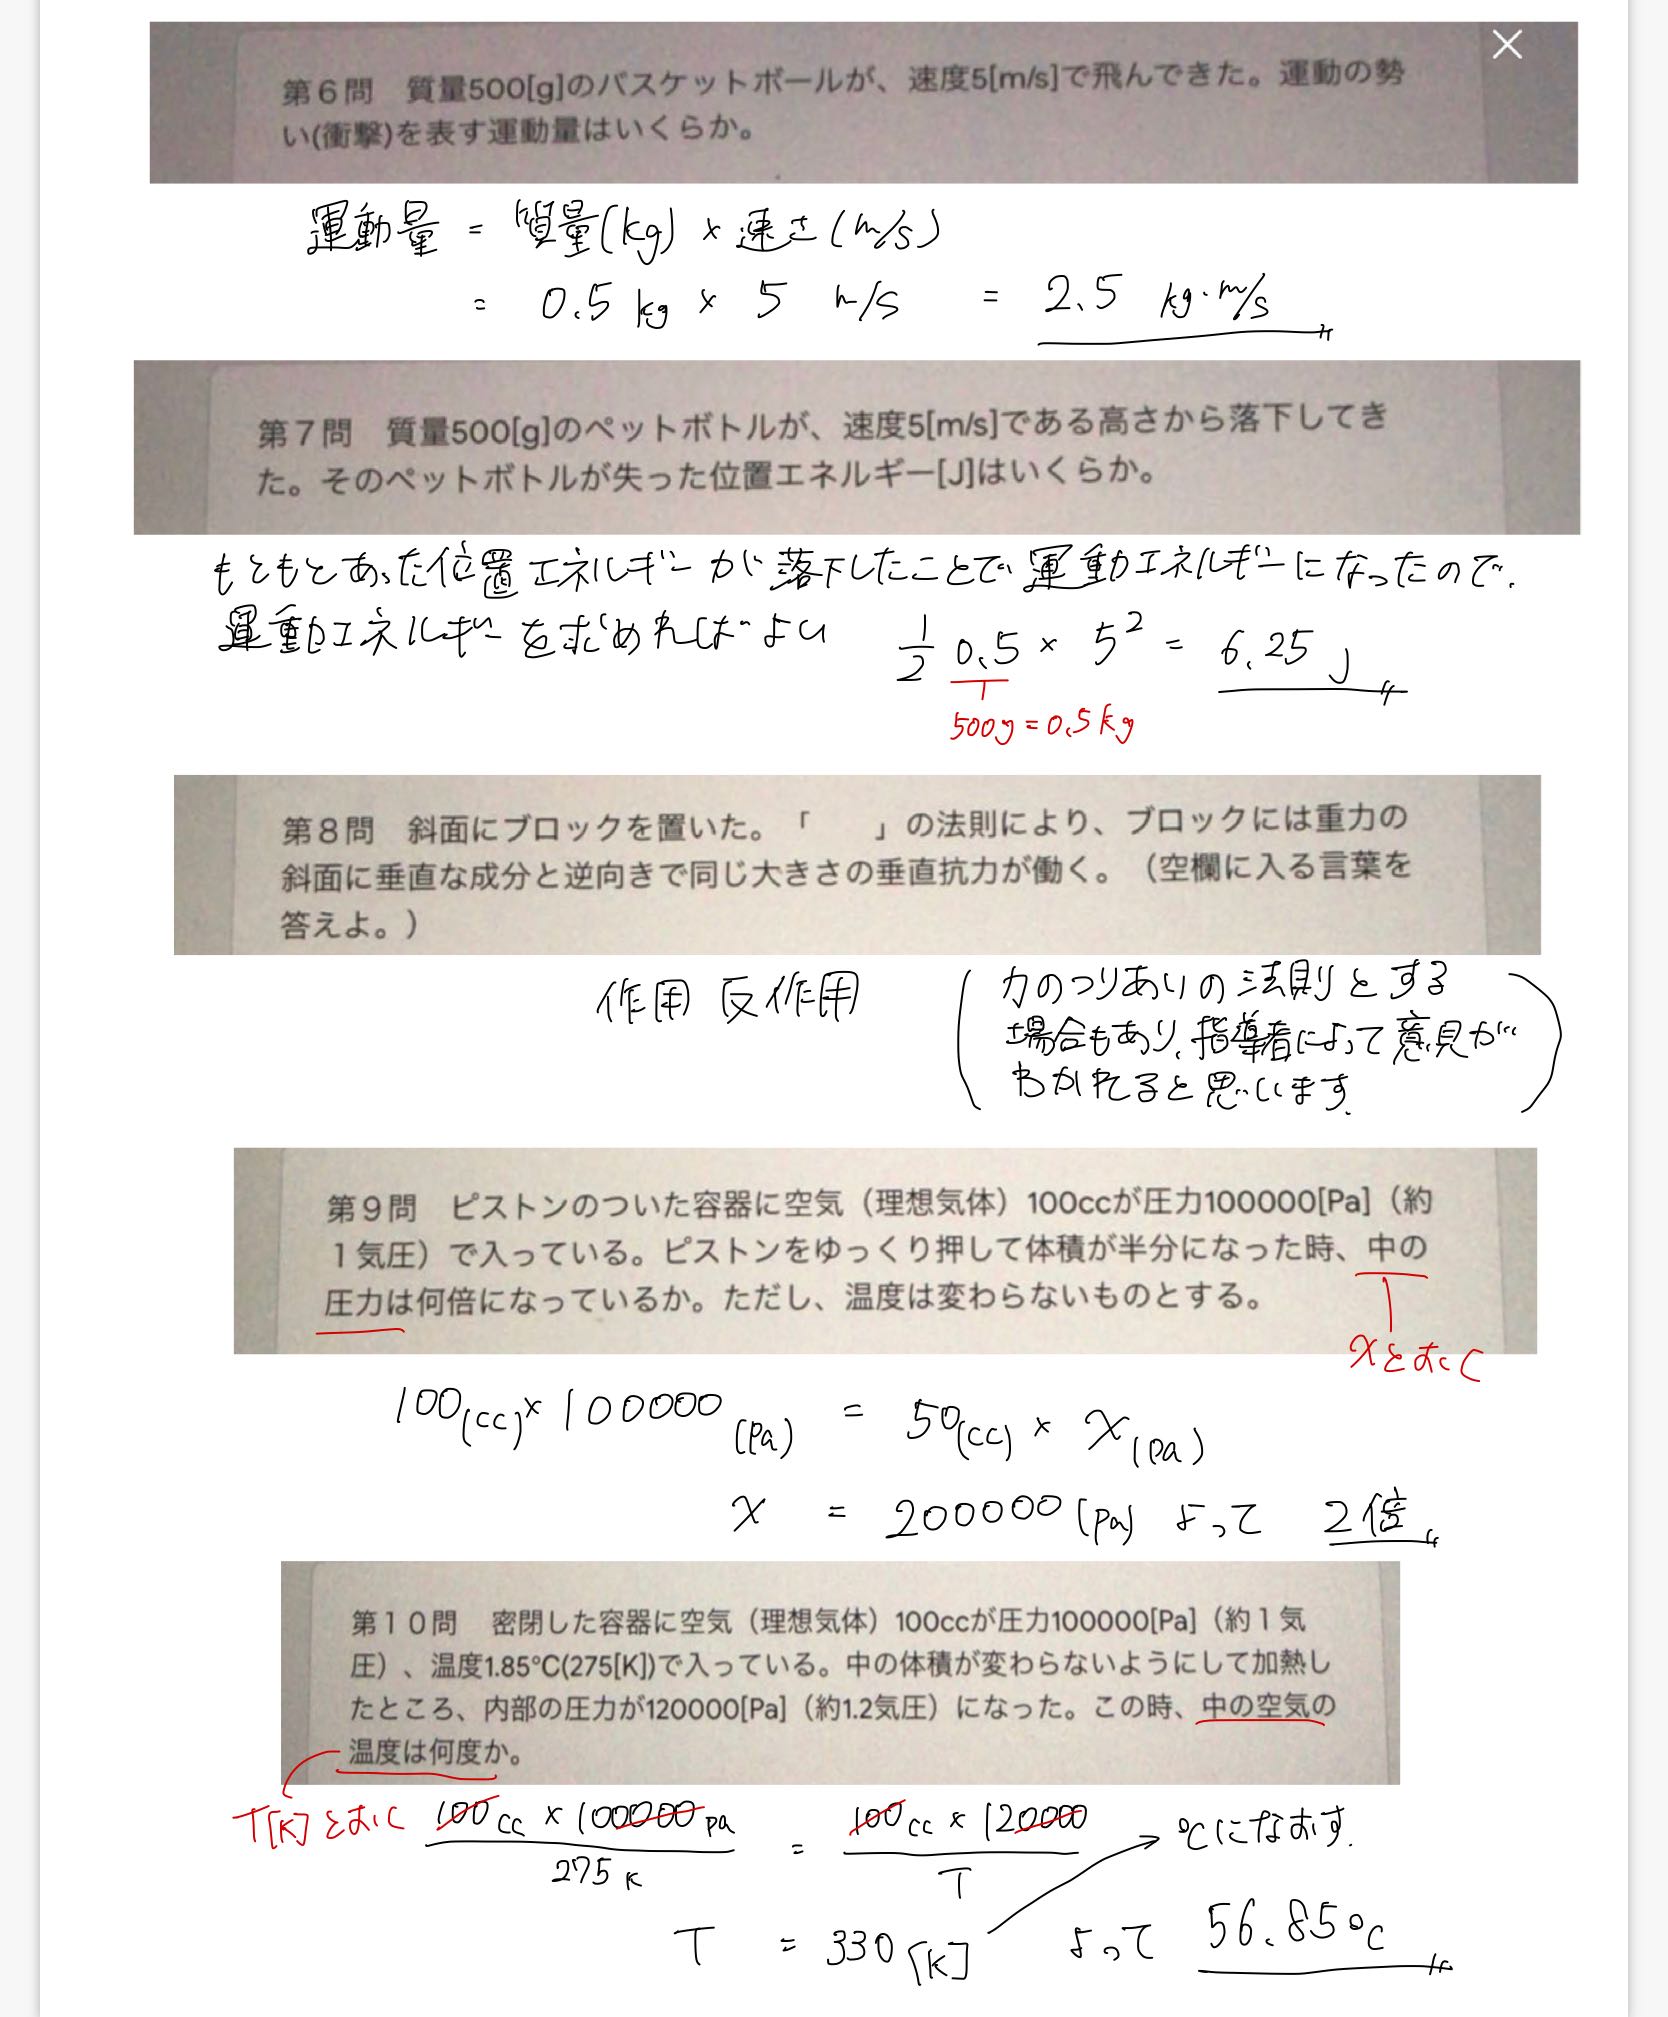 第6問　質量500[g]のバスケットボールが、速度5[m/s]で飛んできた。運動の勢
い(衝撃)を表す運動量はいくらか。
運動量 = 質量(kg) × 速さ(m/s)
= 0.5 kg × 5 m/s = 2.5 kg・m/s
第7問　質量500[g]のペットボトルが、速度5[m/s]である高さから落下してき
た。そのペットボトルが失った位置エネルギー[J]はいくらか。
もともとあった位置エネルギーが落下したことで運動エネルギーになったので.
運動エネルギーを求めればよい 1/2 0.5 × 5² = 6.25 J
500g=0.5kg
第8問　斜面にブロックを置いた。「　　」の法則により、ブロックには重力の
斜面に垂直な成分と逆向きで同じ大きさの垂直抗力が働く。（空欄に入る言葉を
答えよ。）
作用 反作用
(力のつりあいの法則とする
場合もあり、指導者によって意見が
わかれると思います.)
第9問　ピストンのついた容器に空気（理想気体）100ccが圧力100000[Pa]（約
1気圧）で入っている。ピストンをゆっくり押して体積が半分になった時、中の
圧力は何倍になっているか。ただし、温度は変わらないものとする。
xとおく
100(cc)×100000(Pa) = 50(cc)×x(Pa)
x = 200000(Pa) よって 2倍
第10問　密閉した容器に空気（理想気体）100ccが圧力100000[Pa]（約1気
圧）、温度1.85℃(275[K])で入っている。中の体積が変わらないようにして加熱し
たところ、内部の圧力が120000[Pa]（約1.2気圧）になった。この時、中の空気の
温度は何度か。
T[K]とおく 100cc×100000Pa/275K = 100cc×120000/T ℃になおす.
T = 330[K] よって 56.85℃